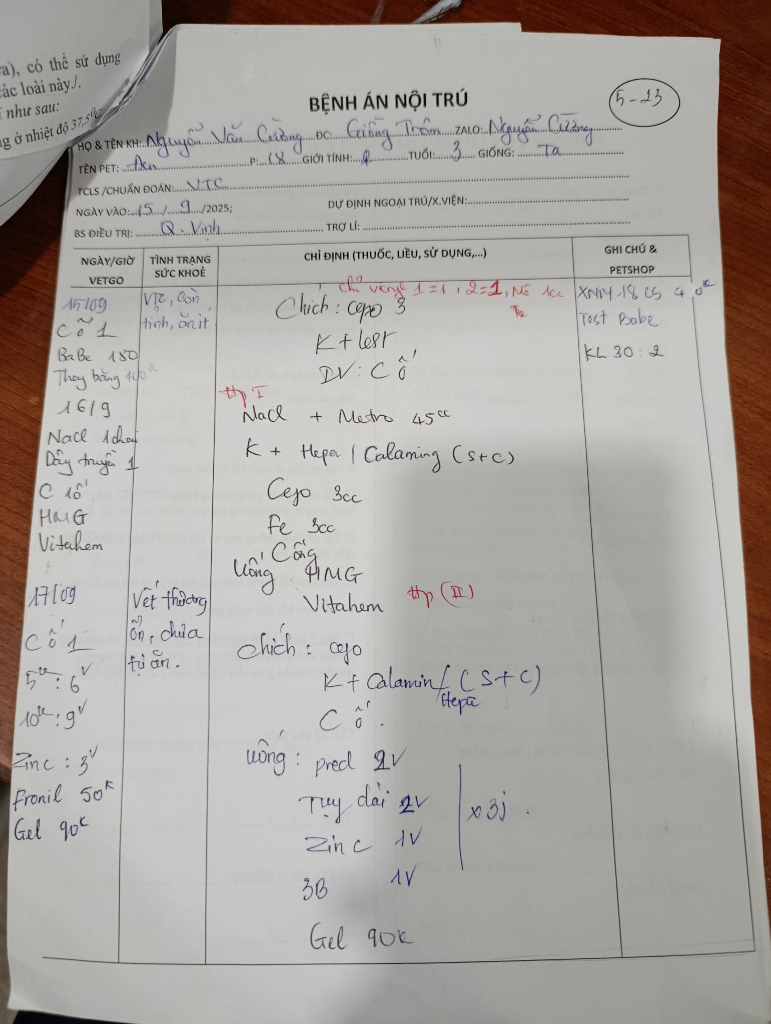 a), có thể sử dụng
ác loài này./.
í như sau:
g ở nhiệt độ 37,5
BỆNH ÁN NỘI TRÚ
5-23
HỌ & TÊN KH: Nguyễn Văn Cường ĐC: Giồng Trôm ZALO: Nguyễn Cường
TÊN PET: Đen P: 18 GIỚI TÍNH: TUỔI: 3 GIỐNG: Ta
TCLS /CHUẨN ĐOÁN: VTC
NGÀY VÀO: 15 / 9 /2025; DỰ ĐỊNH NGOẠI TRÚ/X.VIỆN:
BS ĐIỀU TRỊ: Q. Vinh TRỢ LÍ:
NGÀY/GIỜ VETGO
TÌNH TRẠNG SỨC KHOẺ
CHỈ ĐỊNH (THUỐC, LIỀU, SỬ DỤNG,...)
GHI CHÚ & PETSHOP
15/09
Cố 1
BaBe 180
Thay băng 100K
VTC, còn
tỉnh, ăn ít
Chỉ vicryl 1=1, 2=1, Mê 1cc
Chích: Cepo 3
K + test
DV: Cố
XNM 18 CS 4
Test Babe
KL 30: 2
16/9
Nacl 1 chai
Dây truyền 1
C 1 ố
HMG
Vitahem
Hp I
Nacl + Metro 45cc
K + Hepa / Calaming (S+C)
Cejo 3cc
Fe 3cc
Công
Uống HMG
Vitahem
Hp (II)
17/09
Cố 1
5K: 6V
10K: 9V
Zinc: 3V
Fronil 50K
Gel 90K
Vết thương
ổn, chưa
tự ăn.
Chích: cejo
K + Calamin / (S+C)
Hepa
C ố.
Uống: pred 2V
Tụy dài 2V
Zinc 1V
3B 1V
x 3j
Gel 90K